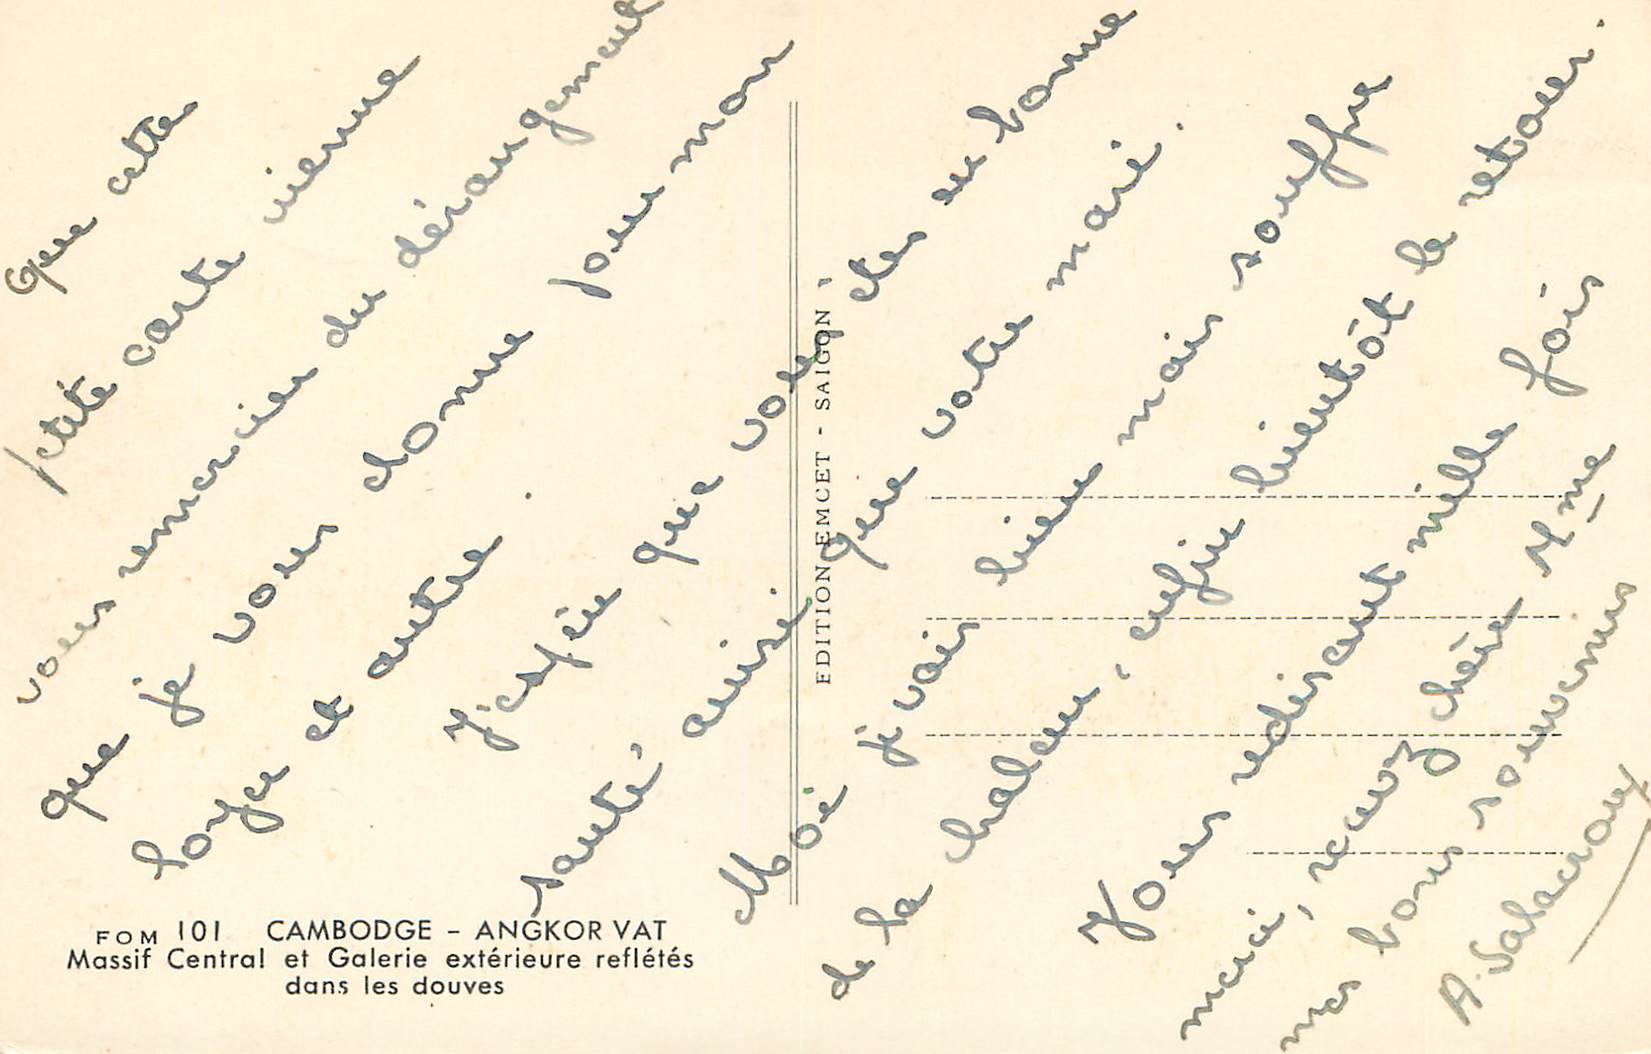 Que cette
petite carte vienne
vous remercier du dérangement
que je vous donne pour mon
loyer et autre.
J'espère que vous êtes en bonne
santé, ainsi que votre mari.
Moi je vais bien mais souffre
de la chaleur, enfin bientôt le retour.
Vous redisant mille fois
merci, recevez chère Mme
mes bons souvenirs
A. Salacroux
EDITION EMCET - SAIGON
FOM 101 CAMBODGE - ANGKOR VAT
Massif Central et Galerie extérieure reflétés
dans les douves